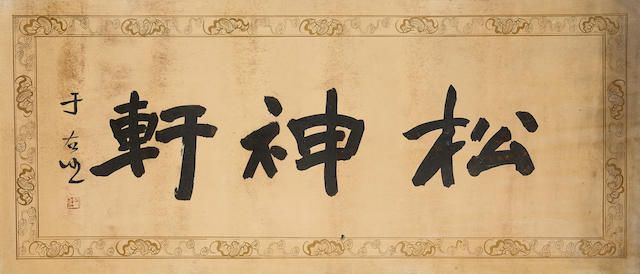 松神軒
于右任